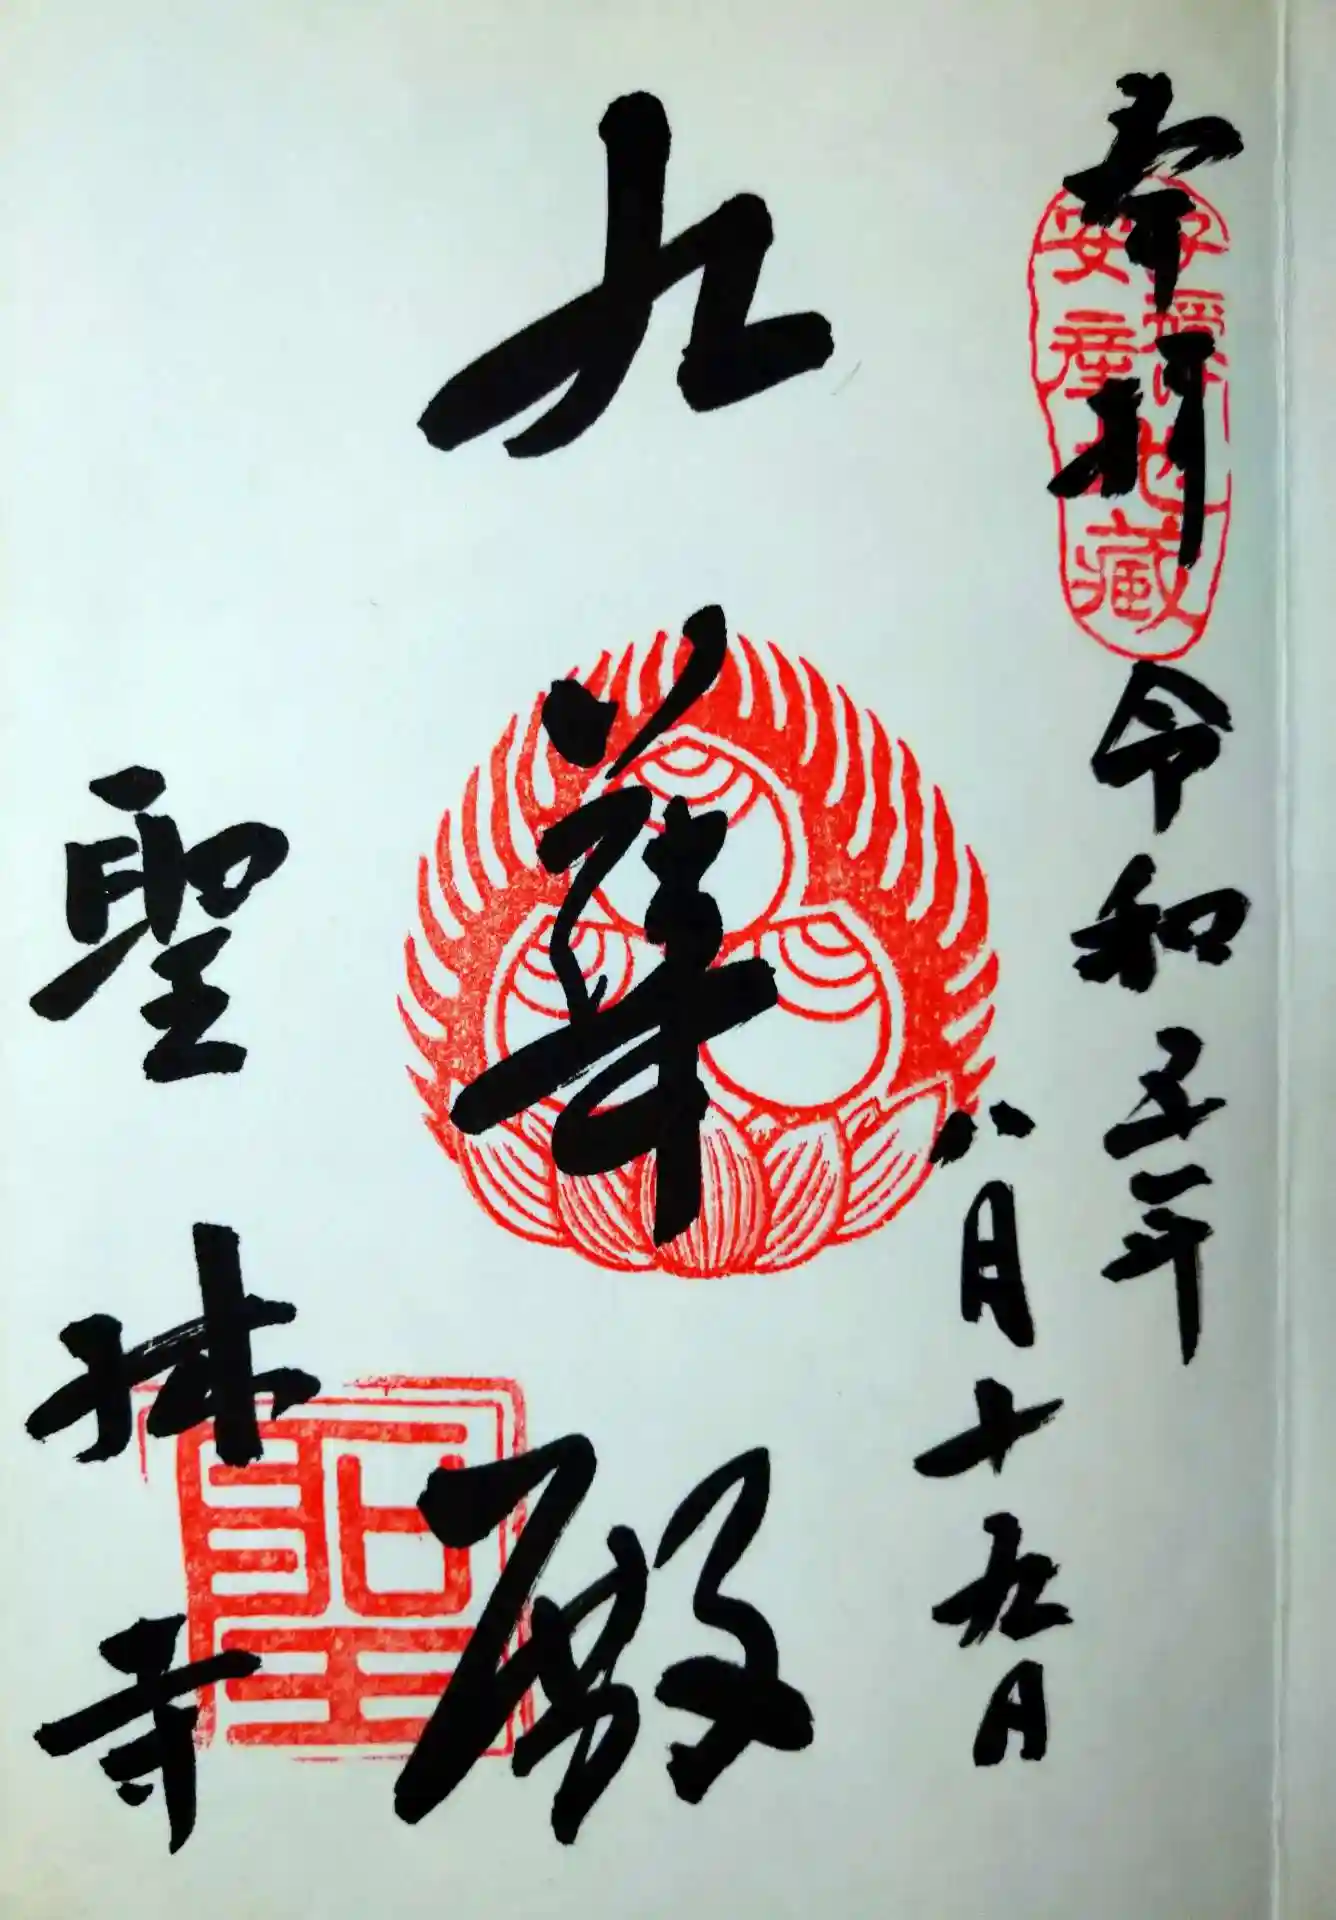 奉拝
令和五年
八月十九日
子授
安産
地蔵
九華殿
聖林寺
聖